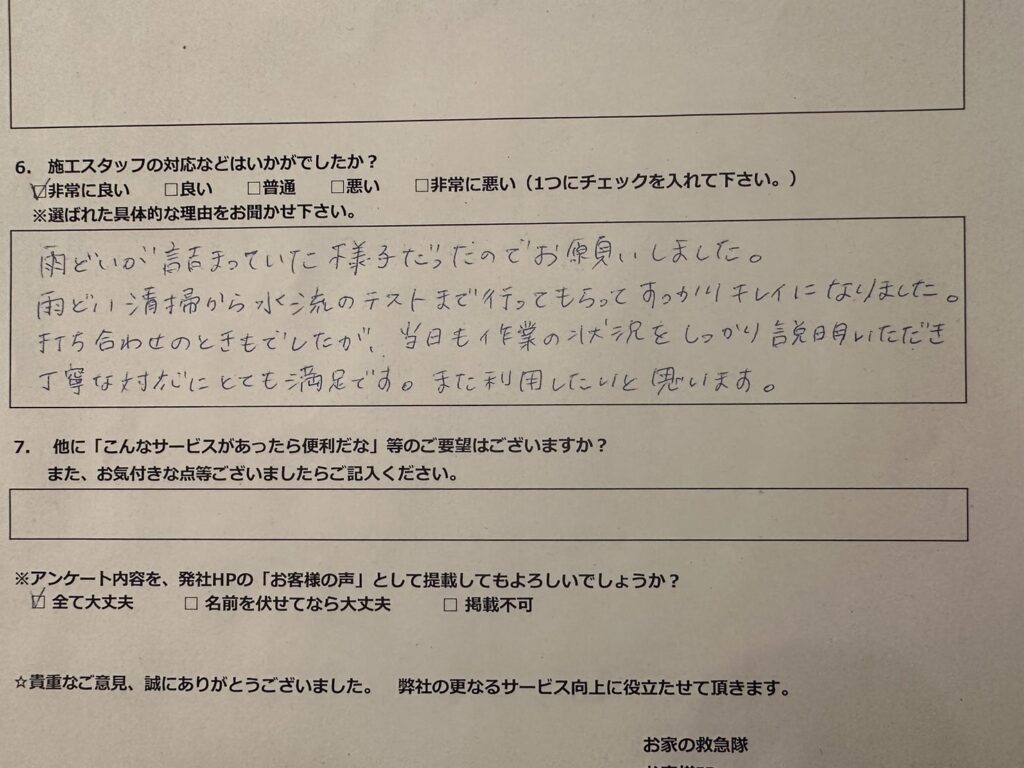 6. 施工スタッフの対応などはいかがでしたか？
☑非常に良い □良い □普通 □悪い □非常に悪い（1つにチェックを入れて下さい。）
※選ばれた具体的な理由をお聞かせ下さい。
雨どいが詰まっていた様子だったのでお願いしました。
雨どい清掃から水流のテストまで行ってもらってすっかりキレイになりました。
打ち合わせのときもでしたが、当日も作業の状況をしっかり説明いただき
丁寧な対応にとても満足です。また利用したいと思います。
7. 他に「こんなサービスがあったら便利だな」等のご要望はございますか？
また、お気付きな点等ございましたらご記入ください。
※アンケート内容を、発社HPの「お客様の声」として提載してもよろしいでしょうか？
☑ 全て大丈夫 □ 名前を伏せてなら大丈夫 □ 掲載不可
☆貴重なご意見、誠にありがとうございました。 弊社の更なるサービス向上に役立たせて頂きます。
お家の救急隊